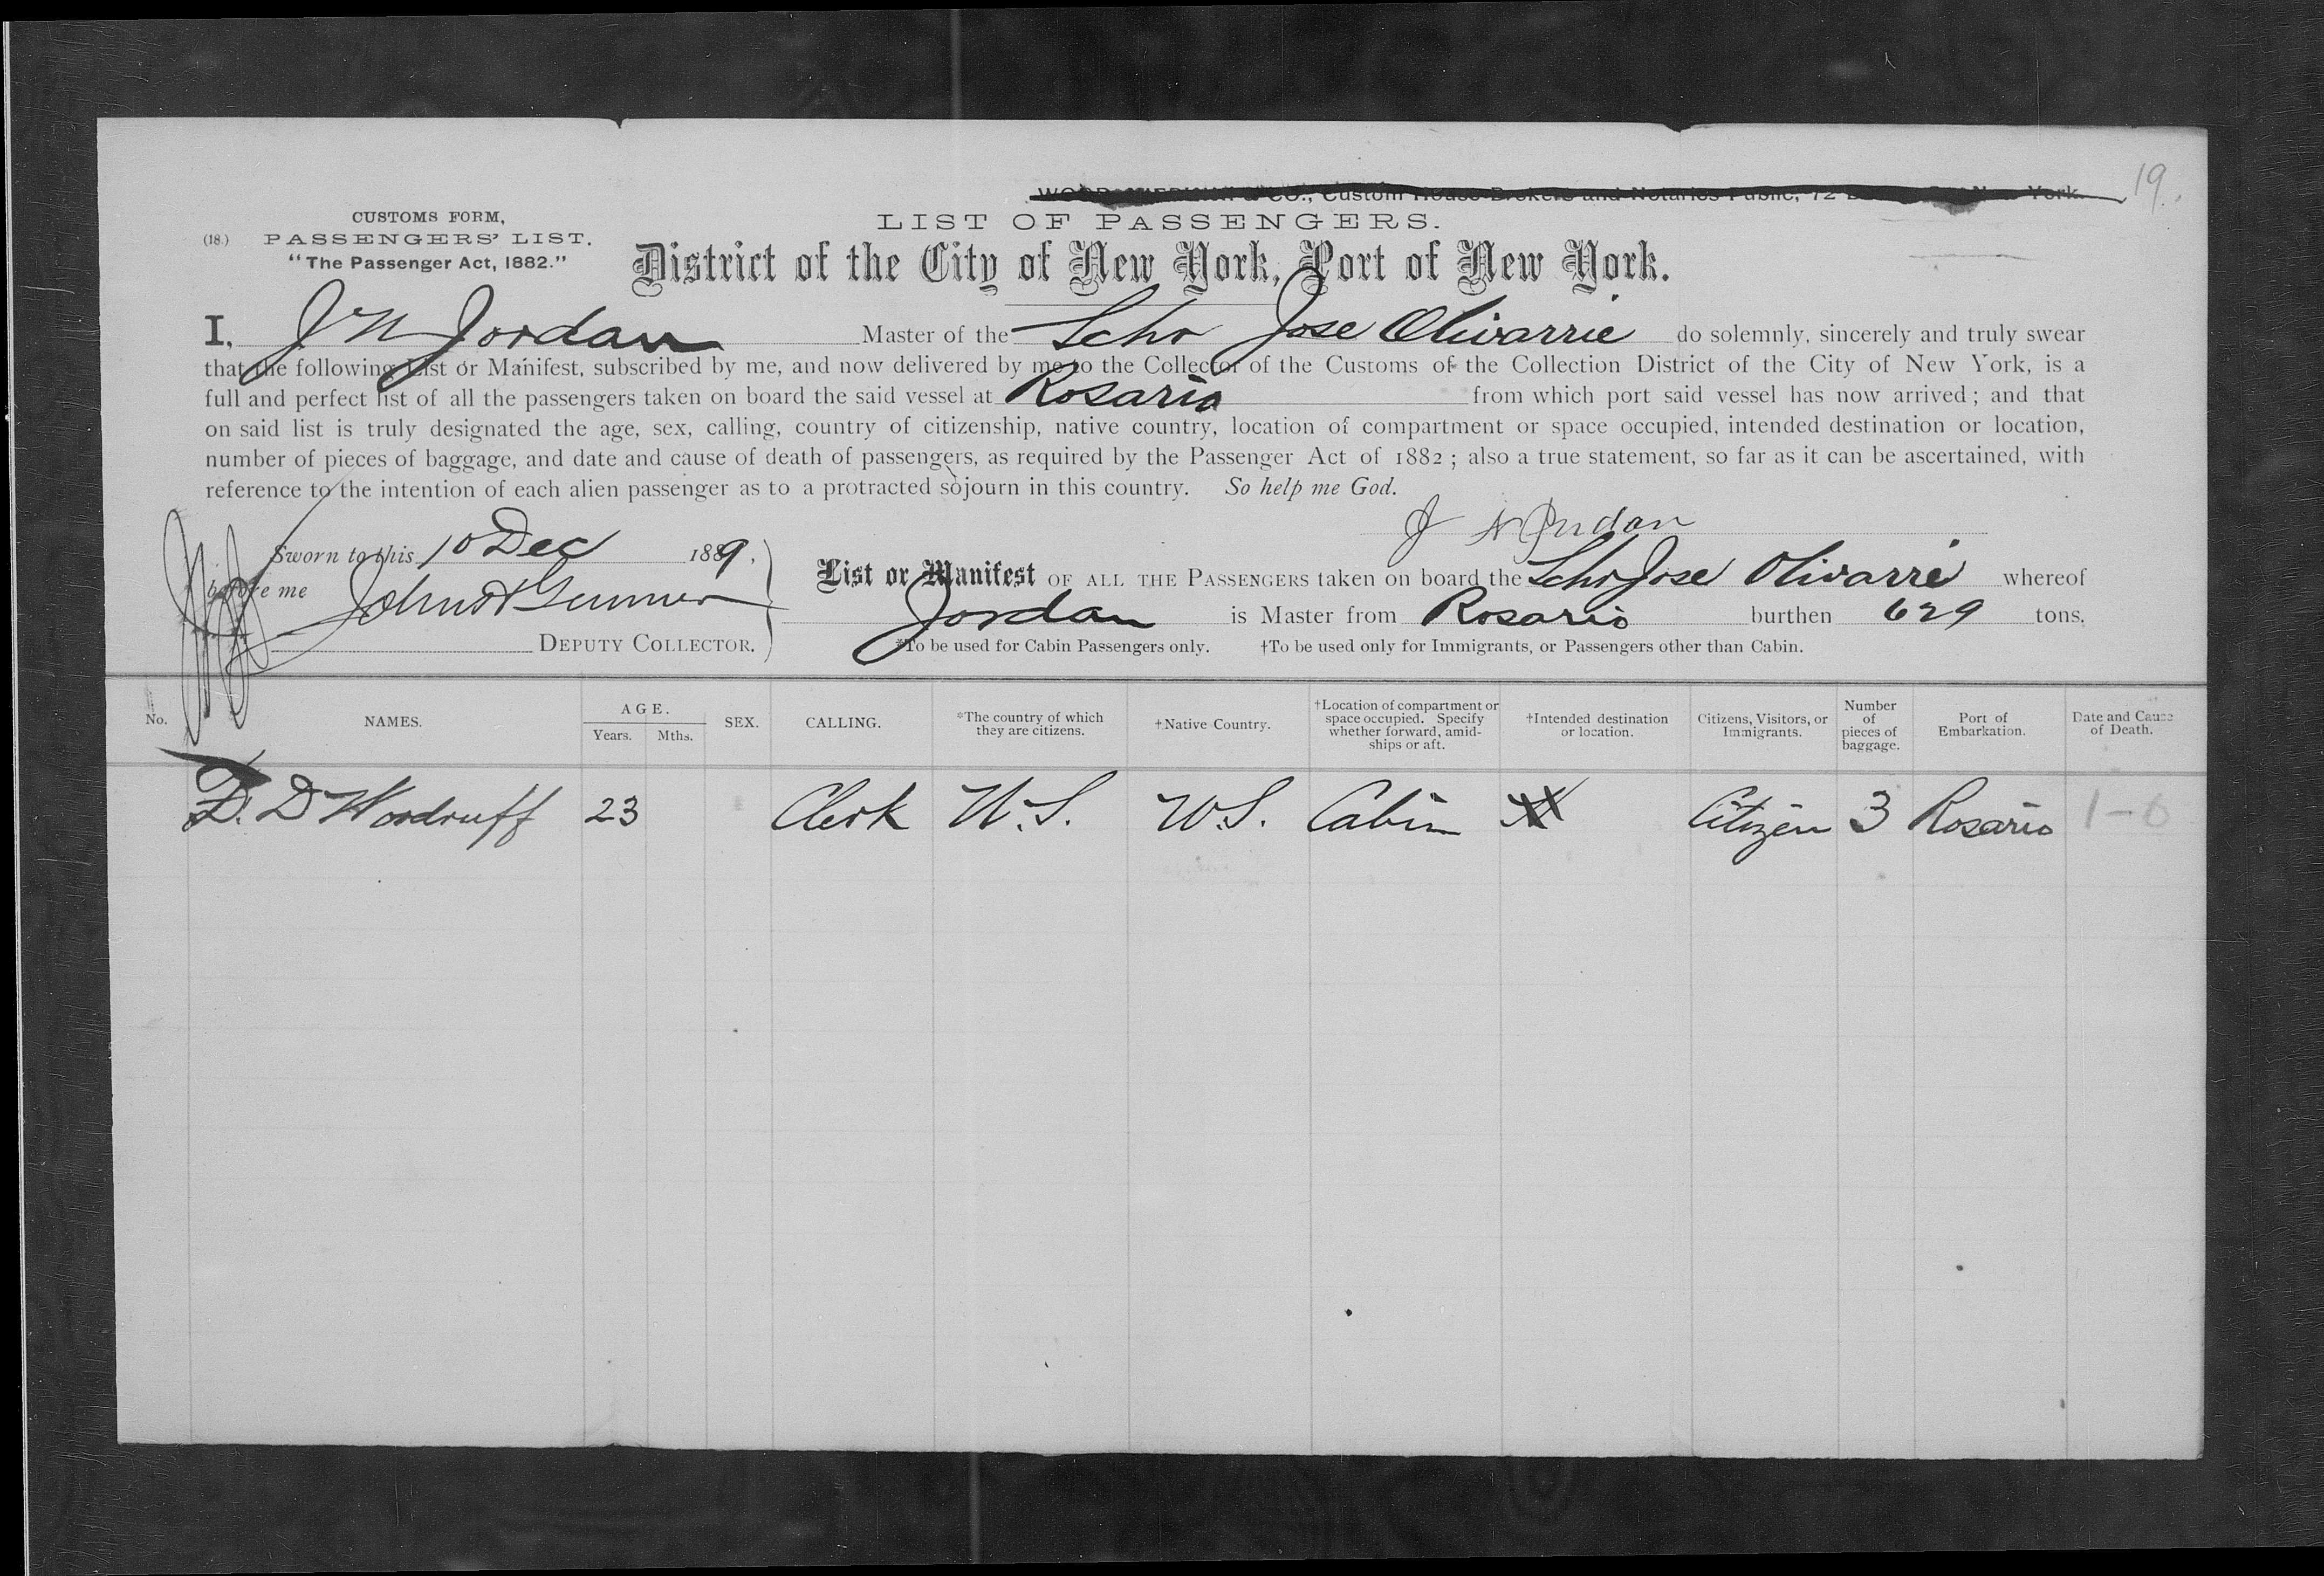 CO., Custom House Brokers and Notaries Public, 72 New York.
19.
CUSTOMS FORM,
(18.) PASSENGERS' LIST.
"The Passenger Act, 1882."
LIST OF PASSENGERS.
District of the City of New York, Port of New York.
I, J N Jordan Master of the Schr Jose Olivarrie do solemnly, sincerely and truly swear
that the following List or Manifest, subscribed by me, and now delivered by me to the Collector of the Customs of the Collection District of the City of New York, is a
full and perfect list of all the passengers taken on board the said vessel at Rosario from which port said vessel has now arrived; and that
on said list is truly designated the age, sex, calling, country of citizenship, native country, location of compartment or space occupied, intended destination or location,
number of pieces of baggage, and date and cause of death of passengers, as required by the Passenger Act of 1882; also a true statement, so far as it can be ascertained, with
reference to the intention of each alien passenger as to a protracted sojourn in this country. So help me God.
J N Jordan
Sworn to this 10 Dec 1889.
before me John
DEPUTY COLLECTOR.
List or Manifest OF ALL THE PASSENGERS taken on board the Schr Jose Olivarre whereof
Jordan is Master from Rosario burthen 629 tons.
*To be used for Cabin Passengers only. †To be used only for Immigrants, or Passengers other than Cabin.
No. NAMES. AGE. Years. Mths. SEX. CALLING. *The country of which they are citizens. †Native Country. †Location of compartment or space occupied. Specify whether forward, amidships or aft. †Intended destination or location. Citizens, Visitors, or Immigrants. Number of pieces of baggage. Port of Embarkation. Date and Cause of Death.
D Woodruff 23 Clerk U.S. U.S. Cabin Citizen 3 Rosario 1-0